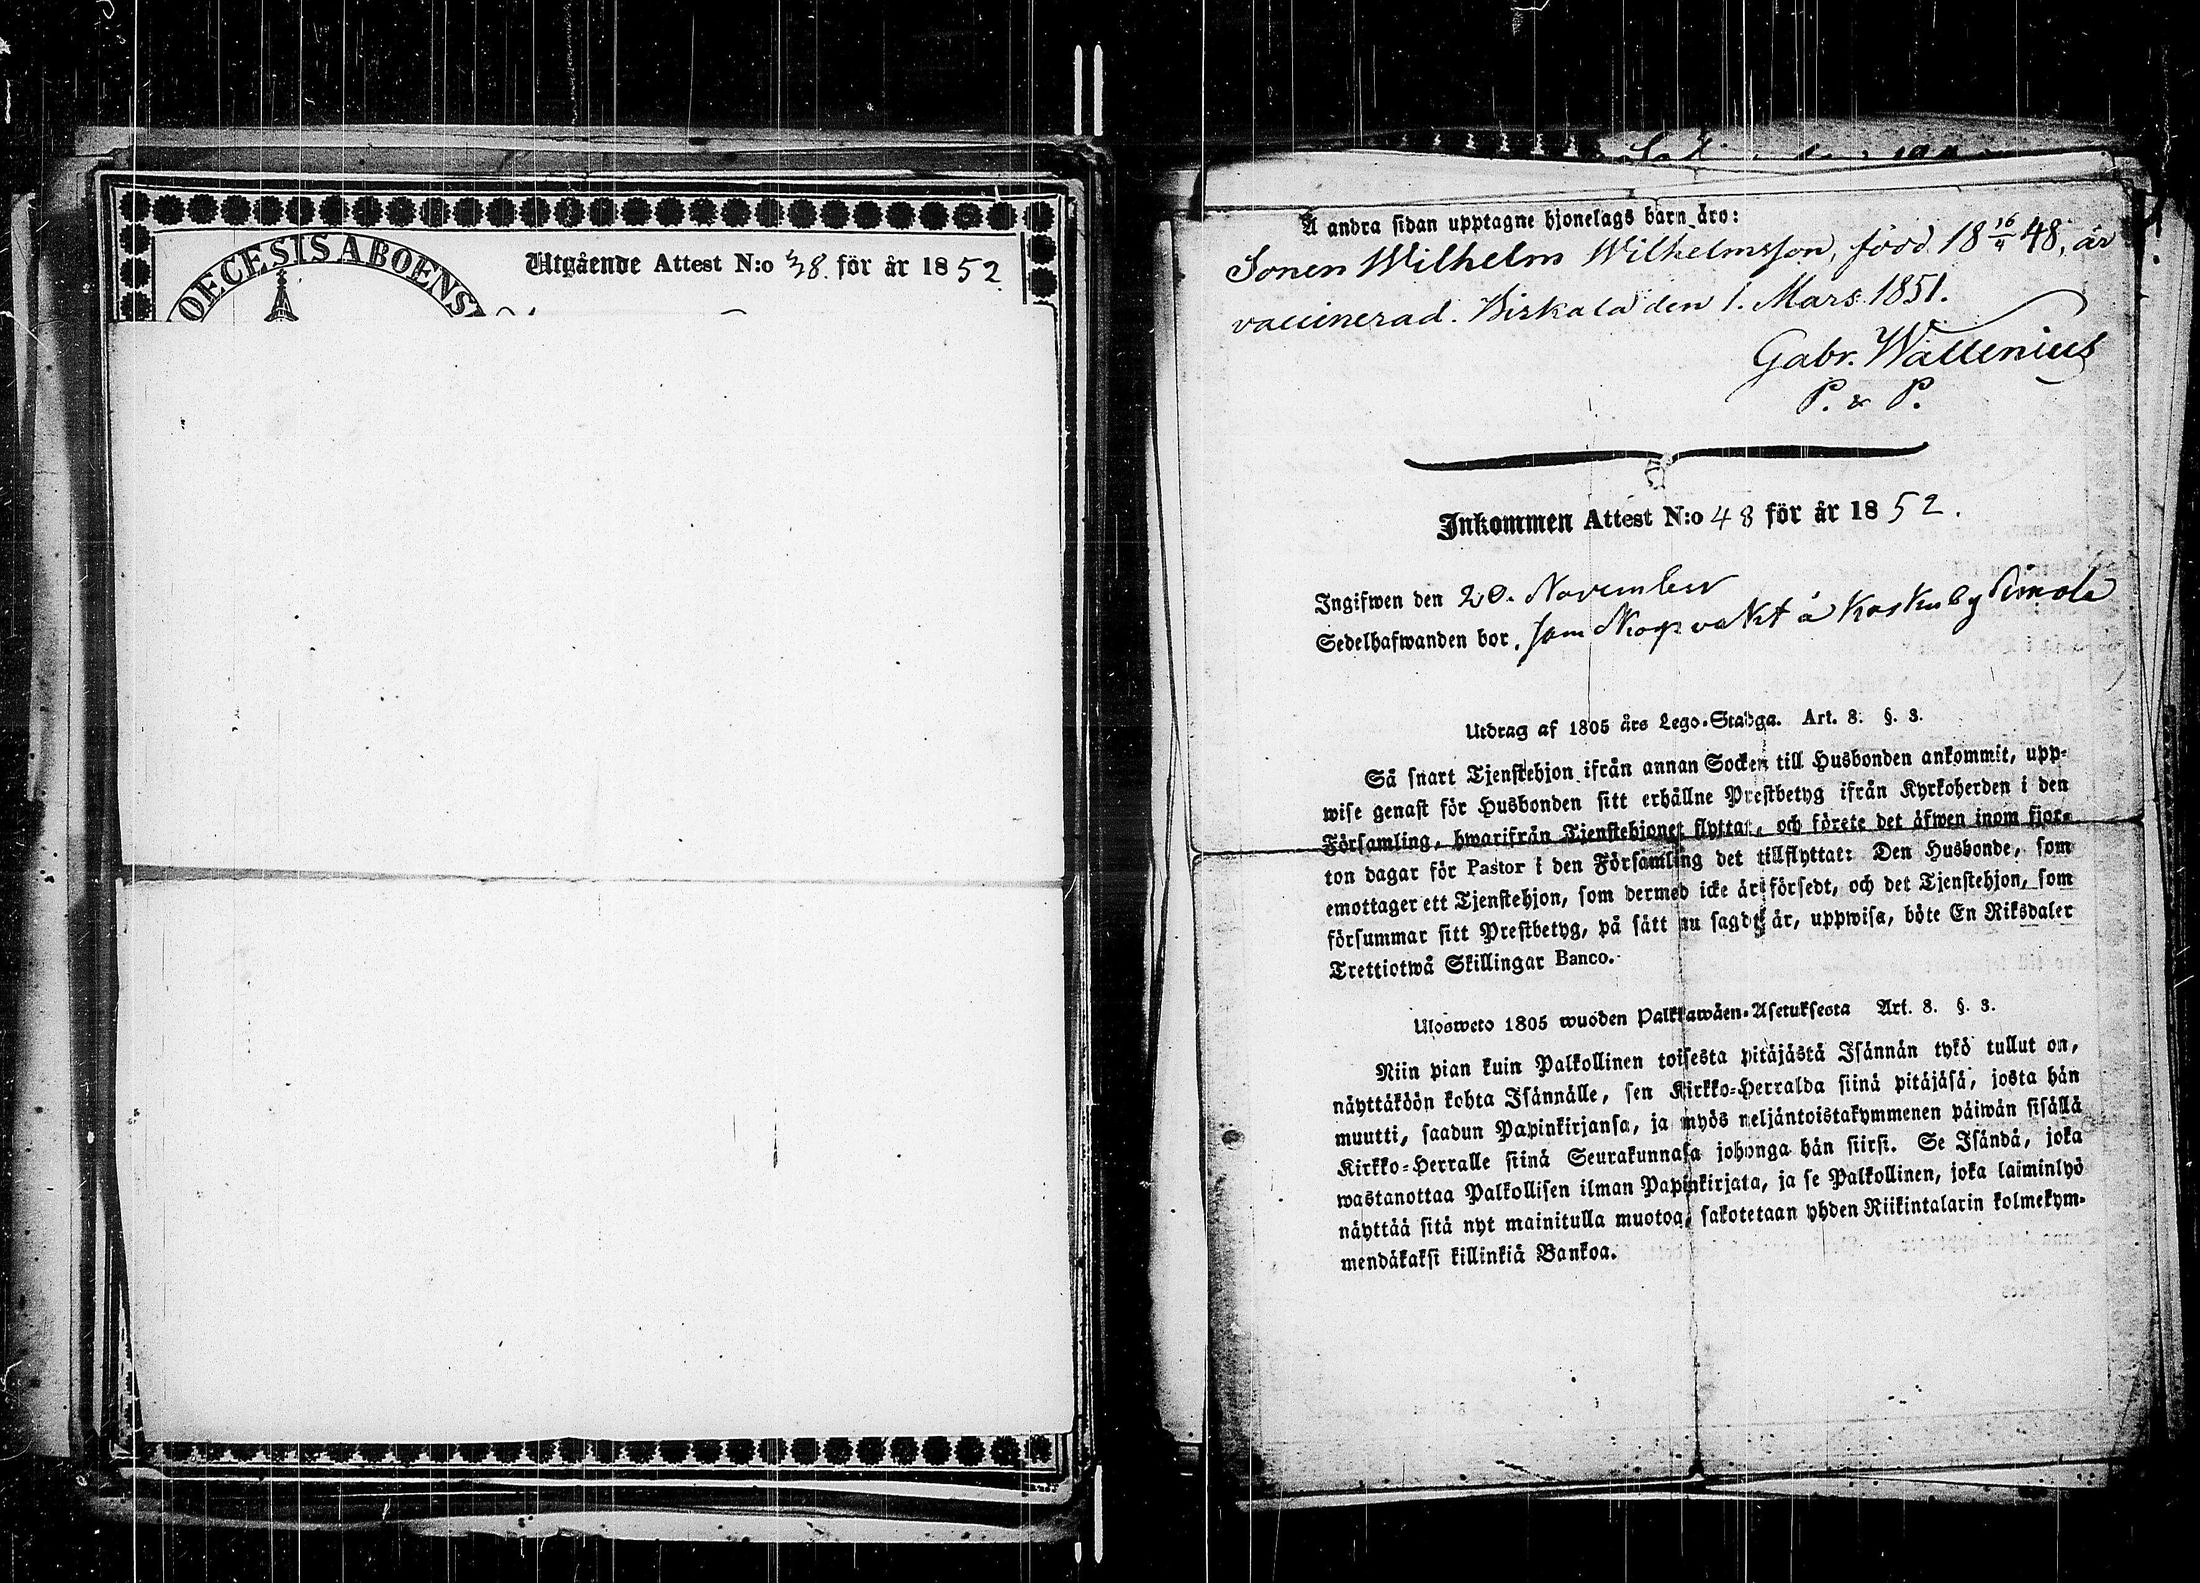 DECESIS ABOENS
Utgående Attest N:o 38 för år 1852
Å andra sidan upptagne hjonelags barn äro:
Sonen Wilhelm Wilhelmsson, född 18 16/4 48, är
vaccinerad. Birkala den 1. Mars 1851.
Gabr. Wallenius
P. & P.
Inkommen Attest N:o 48 för år 1852.
Ingifwen den 20. November
Sedelhafwanden bor som Skogvakt å Koskuby
Utdrag af 1805 års Lego-Stadga. Art. 8. §. 3.
Så snart Tjenstehjon ifrån annan Socken till Husbonden ankommit, upp-
wise genast för Husbonden sitt erhållne Prestbetyg ifrån Kyrkoherden i den
Församling, hwarifrån Tjenstehjonet flyttat, och förete det äfwen inom fjor-
ton dagar för Pastor i den Församling det tillflyttat: Den Husbonde, som
emottager ett Tjenstehjon, som dermed icke är försedt, och det Tjenstehjon, som
försummar sitt Prestbetyg, på sätt nu sagdt är, uppwisa, böte En Riksdaler
Trettiotwå Skillingar Banco.
Ulosweto 1805 wuoden Palkkawäen-Asetuksesta Art. 8. §. 3.
Niin pian kuin Palkollinen toisesta pitäjästä Isännän tykö tullut on,
näyttäköön kohta Isännälle, sen Kirkko-Herralda siinä pitäjäsä, josta hän
muutti, saadun Papinkirjansa, ja myös neljäntoistakymmenen päiwän sisällä
Kirkko-Herralle siinä Seurakunnasa johonga hän siirsi. Se Isändä, joka
wastanottaa Palkollisen ilman Papinkirjata, ja se Palkollinen, joka laiminlyö
näyttää sitä nyt mainitulla muotoa, sakotetaan yhden Riikintalarin kolmekym-
mendäkaksi killinkiä Bankoa.